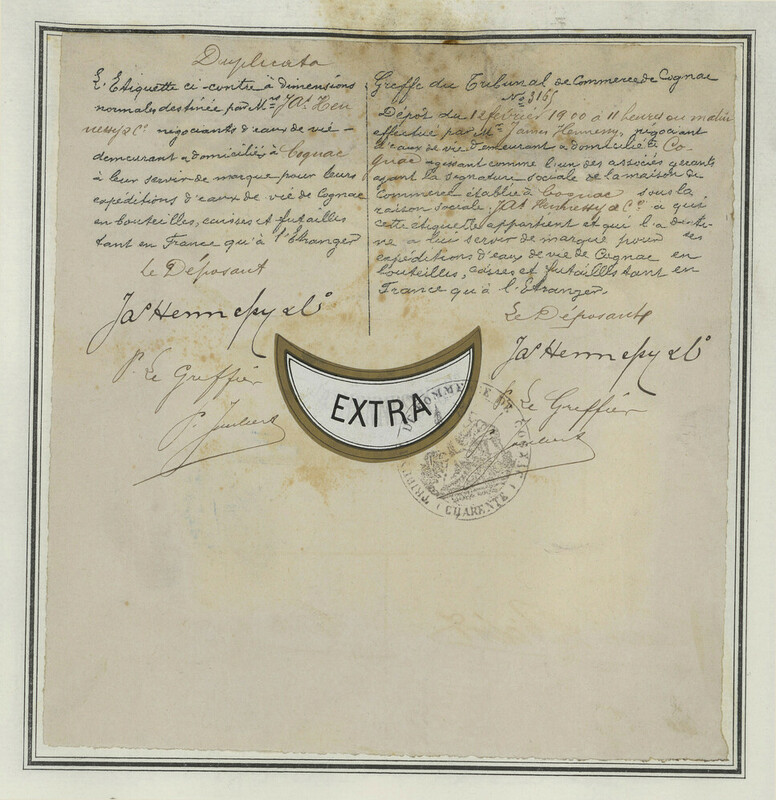 Duplicata
L'Etiquette ci-contre à dimensions
normales destinée par Mrs JAs Hen
nessy & Co négociants d'eaux de vie -
demeurant & domiciliés à Cognac
à leur servir de marque pour leurs
expéditions d'eaux de vie de Cognac
en bouteilles, caisses et futailles
tant en France qu'à l'Etranger
Le Déposant
Jas Hennessy & Co
P. Le Greffier
Greffe du Tribunal de Commerce de Cognac
No 3155
Dépôt du 12 février 1900 à 11 heures du matin
effectué par Mr James Hennessy, négociant
d'eaux de vie demeurant & domicilié à Co-
gnac - agissant comme l'un des associés gérants
ayant la signature sociale de la maison de
Commerce établie à Cognac sous la
raison sociale JAs Hennessy & Co à qui
cette étiquette appartient et qui l'a desti-
né à lui servir de marque pour ses
expéditions d'eaux de vie de Cognac en
bouteilles, caisses et futailles tant en
France qu'à l'Etranger
Le Déposant
Jas Hennessy & Co
P. Le Greffier
EXTRA
CHARENTE